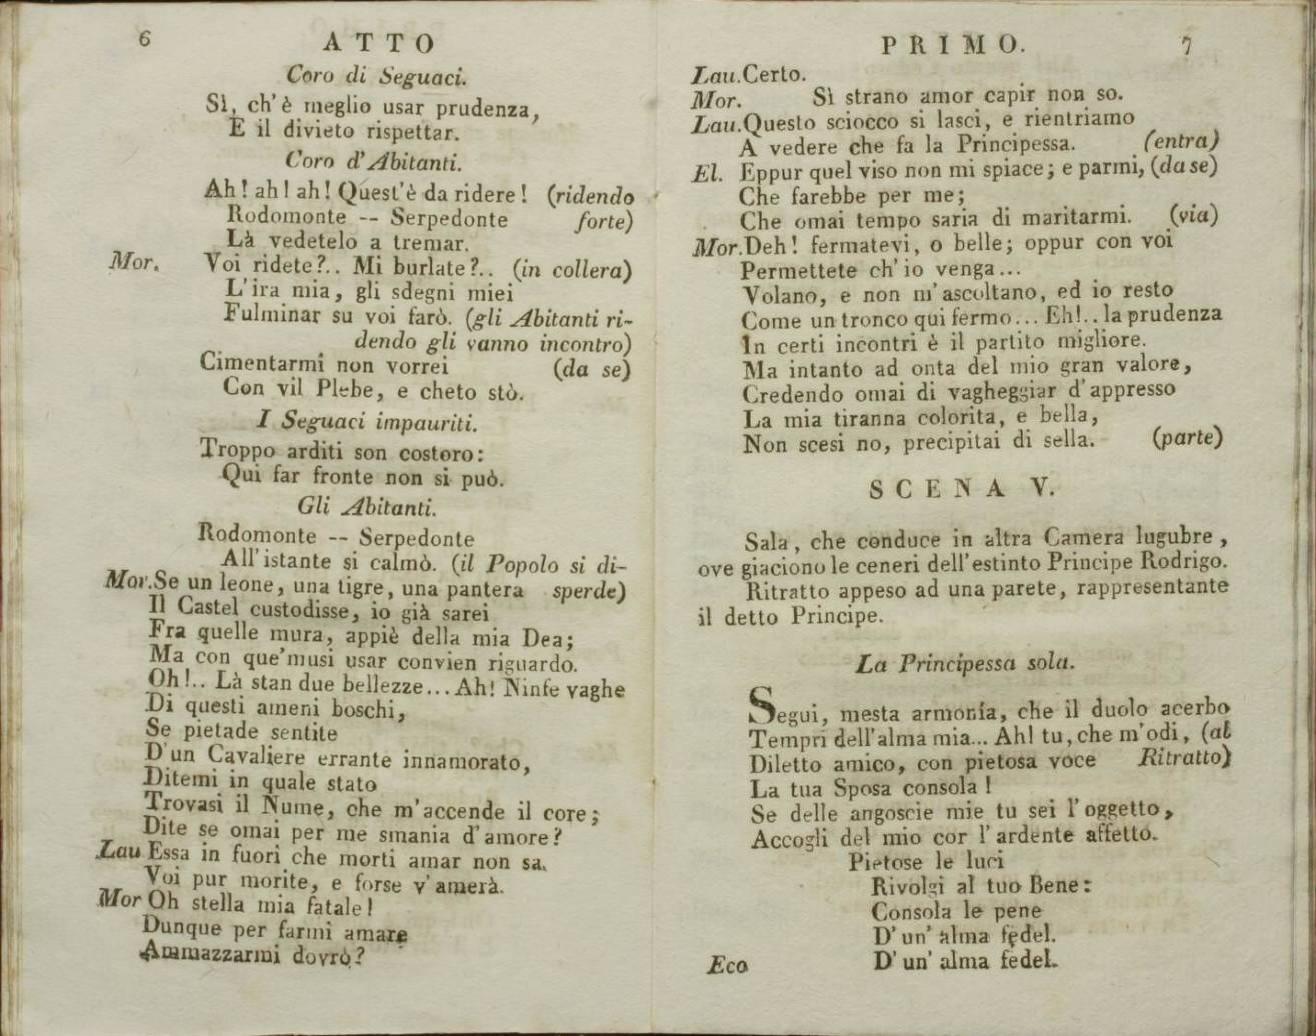 6 ATTO
Coro di Seguaci.
Sì, ch'è meglio usar prudenza,
E il divieto rispettar.
Coro d'Abitanti.
Ah! ah! ah! Quest'è da ridere! (ridendo
Rodomonte -- Serpedonte forte)
Là vedetelo a tremar.
Mor. Voi ridete?.. Mi burlate?.. (in collera)
L'ira mia, gli sdegni miei
Fulminar su voi farò. (gli Abitanti ri-
dendo gli vanno incontro)
Cimentarmi non vorrei (da se)
Con vil Plebe, e cheto stò.
I Seguaci impauriti.
Troppo arditi son costoro:
Qui far fronte non si può.
Gli Abitanti.
Rodomonte -- Serpedonte
All'istante si calmò. (il Popolo si di-
Mor. Se un leone, una tigre, una pantera sperde)
Il Castel custodisse, io già sarei
Fra quelle mura, appiè della mia Dea;
Ma con que'musi usar convien riguardo.
Oh!.. Là stan due bellezze... Ah! Ninfe vaghe
Di questi ameni boschi,
Se pietade sentite
D'un Cavaliere errante innamorato,
Ditemi in quale stato
Trovasi il Nume, che m'accende il core;
Dite se omai per me smania d'amore?
Lau Essa in fuori che morti amar non sa.
Voi pur morite, e forse v'amerà.
Mor Oh stella mia fatale!
Dunque per farmi amare
Ammazzarmi dovrò?
PRIMO. 7
Lau. Certo.
Mor. Sì strano amor capir non so.
Lau. Questo sciocco si lasci, e rientriamo
A vedere che fa la Principessa. (entra)
El. Eppur quel viso non mi spiace; e parmi, (da se)
Che farebbe per me;
Che omai tempo saria di maritarmi. (via)
Mor. Deh! fermatevi, o belle; oppur con voi
Permettete ch'io venga...
Volano, e non m'ascoltano, ed io resto
Come un tronco qui fermo... Eh!.. la prudenza
In certi incontri è il partito migliore.
Ma intanto ad onta del mio gran valore,
Credendo omai di vagheggiar d'appresso
La mia tiranna colorita, e bella,
Non scesi no, precipitai di sella. (parte)
SCENA V.
Sala, che conduce in altra Camera lugubre,
ove giaciono le ceneri dell'estinto Principe Rodrigo.
Ritratto appeso ad una parete, rappresentante
il detto Principe.
La Principessa sola.
Segui, mesta armonía, che il duolo acerbo
Tempri dell'alma mia... Ah! tu, che m'odi, (al
Diletto amico, con pietosa voce Ritratto)
La tua Sposa consola!
Se delle angoscie mie tu sei l'oggetto,
Accogli del mio cor l'ardente affetto.
Pietose le luci
Rivolgi al tuo Bene:
Consola le pene
D'un'alma fedel.
Eco D'un'alma fedel.